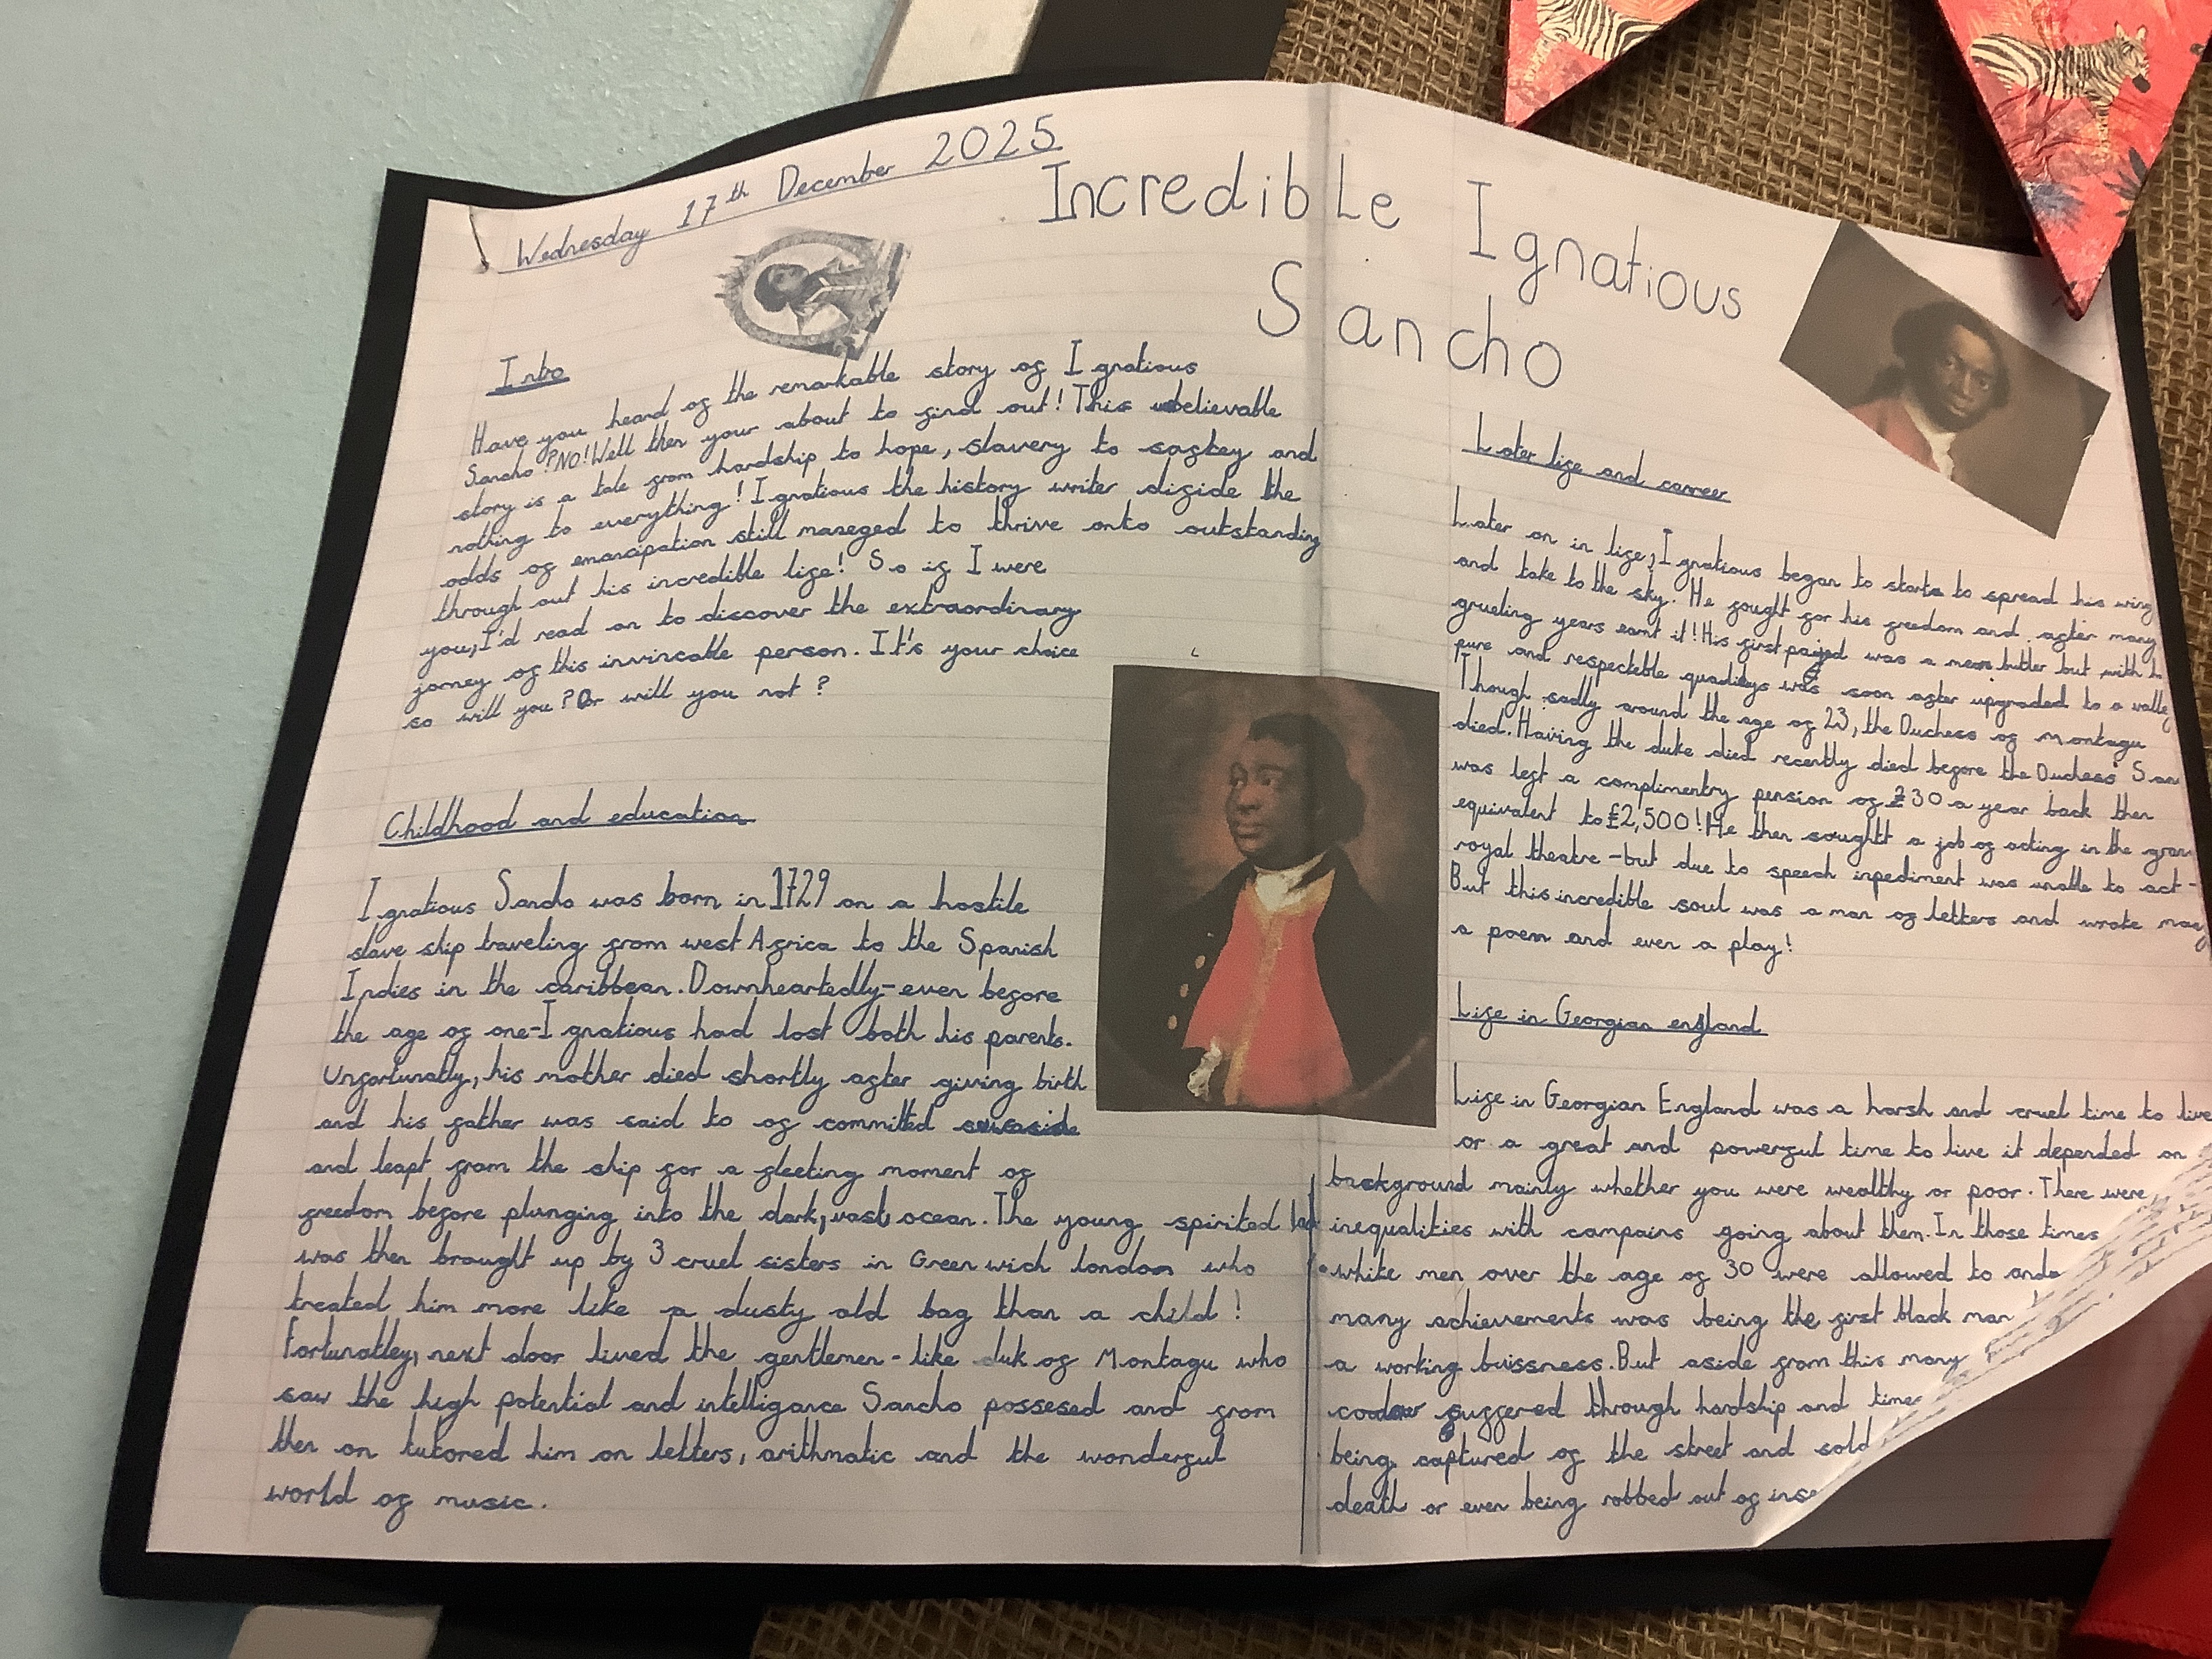 Wednesday 17th December 2025
Incredible Ignatious
Sancho
Intro
Have you heard of the remarkable story of Ignatious
Sancho? NO! Well then your about to find out! This unbelievable
story is a tale from hardship to hope, slavery to saftey and
nothing to everything! Ignatious the history writer difide the
odds of emancipation still maneged to thrive onto outstanding
through out his incredible life! So if I were
you, I'd read on to discover the extraordinary
jorney of this invincable person. It's your choice
so will you? Or will you not?
Childhood and education
Ignatious Sancho was born in 1729 on a hostile
slave ship traveling from west Africa to the Spanish
Indies in the caribbean. Downheartedly-even before
the age of one-Ignatious had lost both his parents.
Unfortunatly, his mother died shortly after giving birth
and his father was said to of committed
and leapt from the ship for a fleeting moment of
freedom before plunging into the dark, vast, ocean. The young spirited lad
was then brought up by 3 cruel sisters in Greenwich london who
treated him more like a dusty old bag than a child!
Fortunatley, next door lived the gentlemen-like duk of Montagu who
saw the high potential and intelligance Sancho possesed and from
then on tutored him on letters, arithmatic and the wonderful
world of music.
Later life and carreer
Later on in life, Ignatious began to starts to spread his wing
and take to the sky. He fought for his freedom and after many
grueling years earnt it! His first was a mear butler but with h
pure and respecteble soon after upgraded to a
Though sadly around the age of 23, the Duchess of montagu
died. Having the duke died recently died before the Duchess San
was left a complimentry pension of £30 a year back then
equivalent to £2,500! He then soughtt a job of acting in the
royal theatre-but due to speech inpediment was unable to act-
But this incredible soul was a man of letters and wrote many
a poem and even a play!
Life in Georgian england
Life in Georgian England was a harsh and cruel time to live
or a great and powerful time to live it depended on
background mainly whether you were wealthy or poor. There were
inequalities with campains going about them. In those times
white men over the age of 30 were allowed to
many achievements was being the first black man
a working buissness. But aside from this many
suffered through hardship and
being captured of the street and sold
death or even being robbed out of